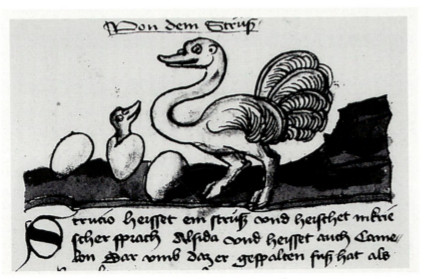 Von dem Struß
Strucio heisset ein struß vnd heischet in krie
scher sprach Alsida vnd heisset auch Came-
lon Dar vmb daz er gespalten fuß hat als